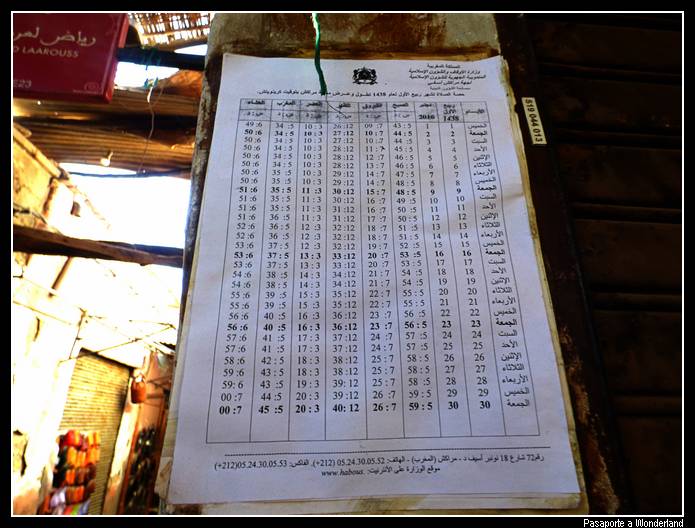 رياض لعروس
D LAAROUSS
E23
المملكة المغربية
وزارة الأوقاف والشؤون الإسلامية
المندوبية الجهوية للشؤون الإسلامية
لجهة مراكش آسفي
حصة الصلاة لشهر ربيع الأول لعام 1438 لطول وعرض مدينة مراكش بتوقيت كرينويتش.
الأيام ربيع الأول 1438 دجنبر 2016 الصبح الشروق الظهر العصر المغرب العشاء
الخميس 1 1 5: 43 7: 09 12: 26 3: 10 5: 34 6: 49
الجمعة 2 2 5: 44 7: 10 12: 27 3: 10 5: 34 6: 50
السبت 3 3 5: 44 7: 10 12: 27 3: 10 5: 34 6: 50
الأحد 4 4 5: 45 7: 11 12: 28 3: 10 5: 34 6: 50
الإثنين 5 5 5: 46 7: 12 12: 28 3: 10 5: 34 6: 50
الثلاثاء 6 6 5: 46 7: 13 12: 28 3: 10 5: 34 6: 50
الأربعاء 7 7 5: 47 7: 14 12: 29 3: 10 5: 35 6: 50
الخميس 8 8 5: 48 7: 14 12: 29 3: 11 5: 35 6: 50
الجمعة 9 9 5: 48 7: 15 12: 30 3: 11 5: 35 6: 51
السبت 10 10 5: 49 7: 16 12: 30 3: 11 5: 35 6: 51
الأحد 11 11 5: 50 7: 16 12: 31 3: 11 5: 36 6: 51
الإثنين 12 12 5: 50 7: 17 12: 31 3: 12 5: 36 6: 51
الثلاثاء 13 13 5: 51 7: 18 12: 32 3: 12 5: 36 6: 52
الأربعاء 14 14 5: 51 7: 18 12: 32 3: 12 5: 36 6: 52
الخميس 15 15 5: 52 7: 19 12: 32 3: 12 5: 37 6: 53
الجمعة 16 16 5: 53 7: 20 12: 33 3: 13 5: 37 6: 53
السبت 17 17 5: 53 7: 20 12: 33 3: 13 5: 37 6: 53
الأحد 18 18 5: 54 7: 21 12: 34 3: 14 5: 38 6: 54
الإثنين 19 19 5: 54 7: 21 12: 34 3: 14 5: 38 6: 54
الثلاثاء 20 20 5: 55 7: 22 12: 35 3: 15 5: 39 6: 55
الأربعاء 21 21 5: 55 7: 22 12: 35 3: 15 5: 39 6: 55
الخميس 22 22 5: 56 7: 22 12: 36 3: 16 5: 40 6: 56
الجمعة 23 23 5: 56 7: 23 12: 36 3: 16 5: 40 6: 56
السبت 24 24 5: 57 7: 24 12: 37 3: 17 5: 41 6: 57
الأحد 25 25 5: 57 7: 24 12: 37 3: 17 5: 42 6: 57
الإثنين 26 26 5: 58 7: 25 12: 38 3: 18 5: 42 6: 58
الثلاثاء 27 27 5: 58 7: 25 12: 38 3: 18 5: 43 6: 59
الأربعاء 28 28 5: 58 7: 25 12: 39 3: 19 5: 43 6: 59
الخميس 29 29 5: 59 7: 26 12: 39 3: 20 5: 44 7: 00
الجمعة 30 30 5: 59 7: 26 12: 40 3: 20 5: 45 7: 00
رقم72 شارع 18 نونبر أسيف د - مراكش (المغرب) - الهاتف: 05.24.30.05.52 (212+)، الفاكس: 05.24.30.05.53 (212+)
موقع الوزارة على الأنترنيت: www.habous.
519 044 013
Pasaporte a Wonderland